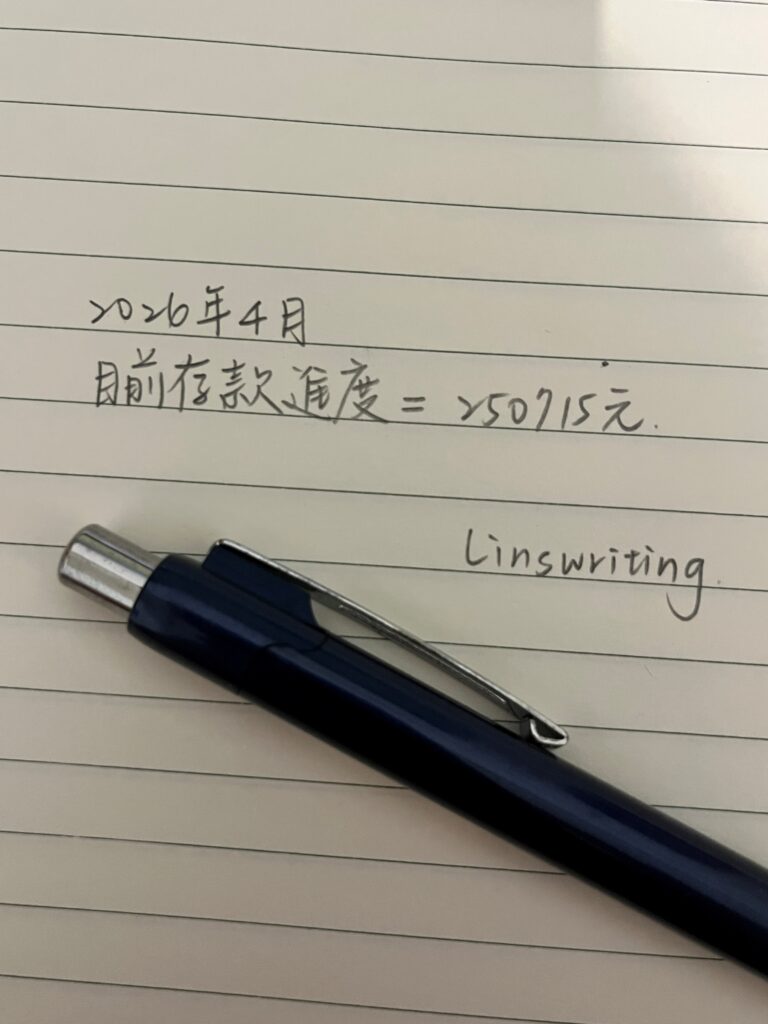 2026年4月
目前存款進度 = 250715元.
Linswriting.